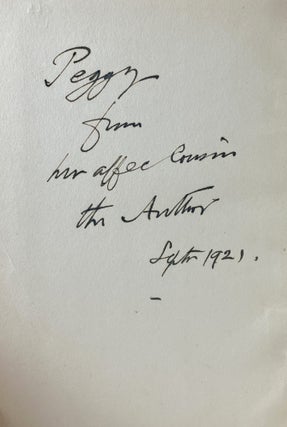 Peggy
from
her affec Cousin
the Author
Septr 1921.